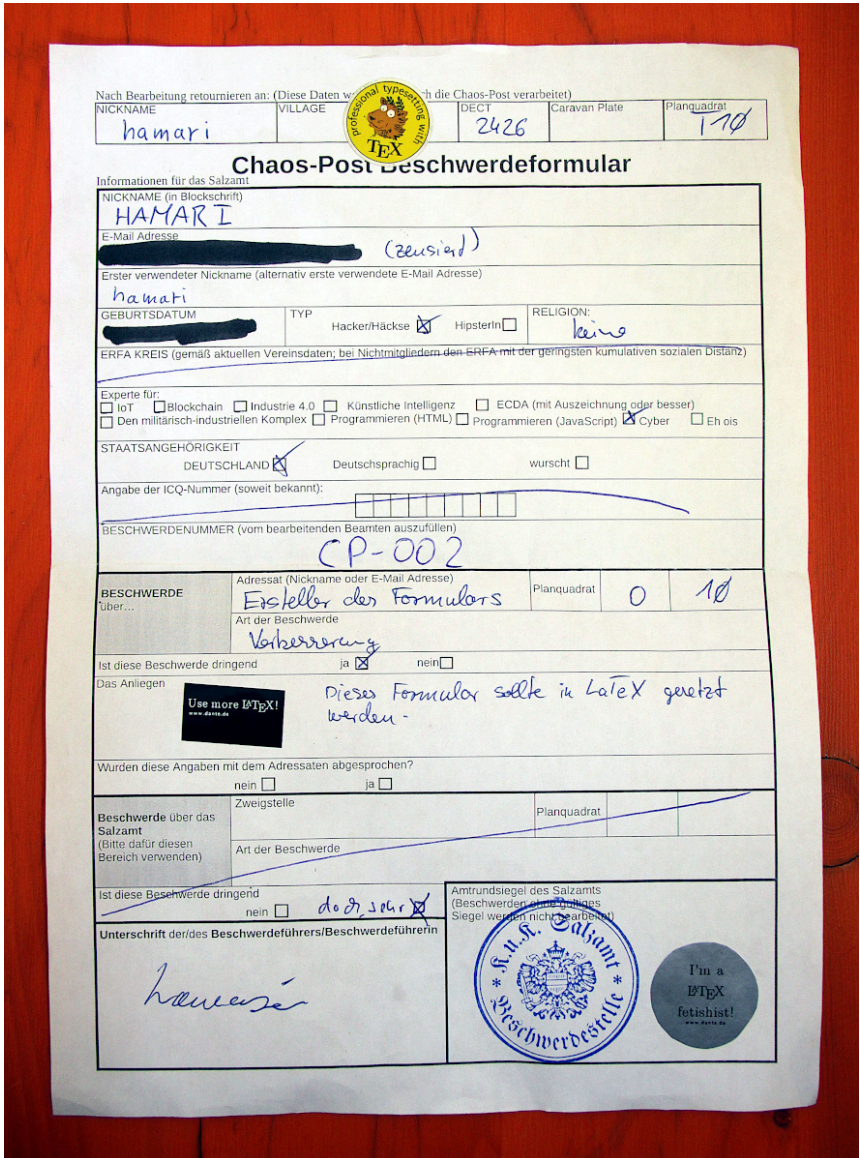 Nach Bearbeitung retournieren an: (Diese Daten ch die Chaos-Post verarbeitet)
NICKNAME VILLAGE DECT Caravan Plate Planquadrat
hamari 2426 T 10
professional typesetting with
TEX
Chaos-Post Beschwerdeformular
Informationen für das Salzamt
NICKNAME (in Blockschrift)
HAMARI
E-Mail Adresse
(zensiert)
Erster verwendeter Nickname (alternativ erste verwendete E-Mail Adresse)
hamari
GEBURTSDATUM TYP Hacker/Häckse HipsterIn RELIGION:
keine
ERFA KREIS (gemäß aktuellen Vereinsdaten; bei Nichtmitgliedern den ERFA mit der geringsten kumulativen sozialen Distanz)
Experte für:
IoT Blockchain Industrie 4.0 Künstliche Intelligenz ECDA (mit Auszeichnung oder besser)
Den militärisch-industriellen Komplex Programmieren (HTML) Programmieren (JavaScript) Cyber Eh ois
STAATSANGEHÖRIGKEIT
DEUTSCHLAND Deutschsprachig wurscht
Angabe der ICQ-Nummer (soweit bekannt):
BESCHWERDENUMMER (vom bearbeitenden Beamten auszufüllen)
CP-002
BESCHWERDE
über...
Adressat (Nickname oder E-Mail Adresse)
Ersteller des Formulars
Planquadrat O 10
Art der Beschwerde
Verbesserung
Ist diese Beschwerde dringend ja nein
Das Anliegen
Use more LATEX!
www.dante.de
Dieses Formular sollte in LaTeX gesetzt
werden.
Wurden diese Angaben mit dem Adressaten abgesprochen?
nein ja
Beschwerde über das
Salzamt
(Bitte dafür diesen
Bereich verwenden)
Zweigstelle
Planquadrat
Art der Beschwerde
Ist diese Beschwerde dringend
nein doch, sehr
Unterschrift der/des Beschwerdeführers/Beschwerdeführerin
Amtrundsiegel des Salzamts
(Beschwerden ohne gültiges
Siegel werden nicht bearbeitet)
K.u.K. Salzamt
Beschwerdestelle
I'm a
LATEX
fetishist!
www.dante.de